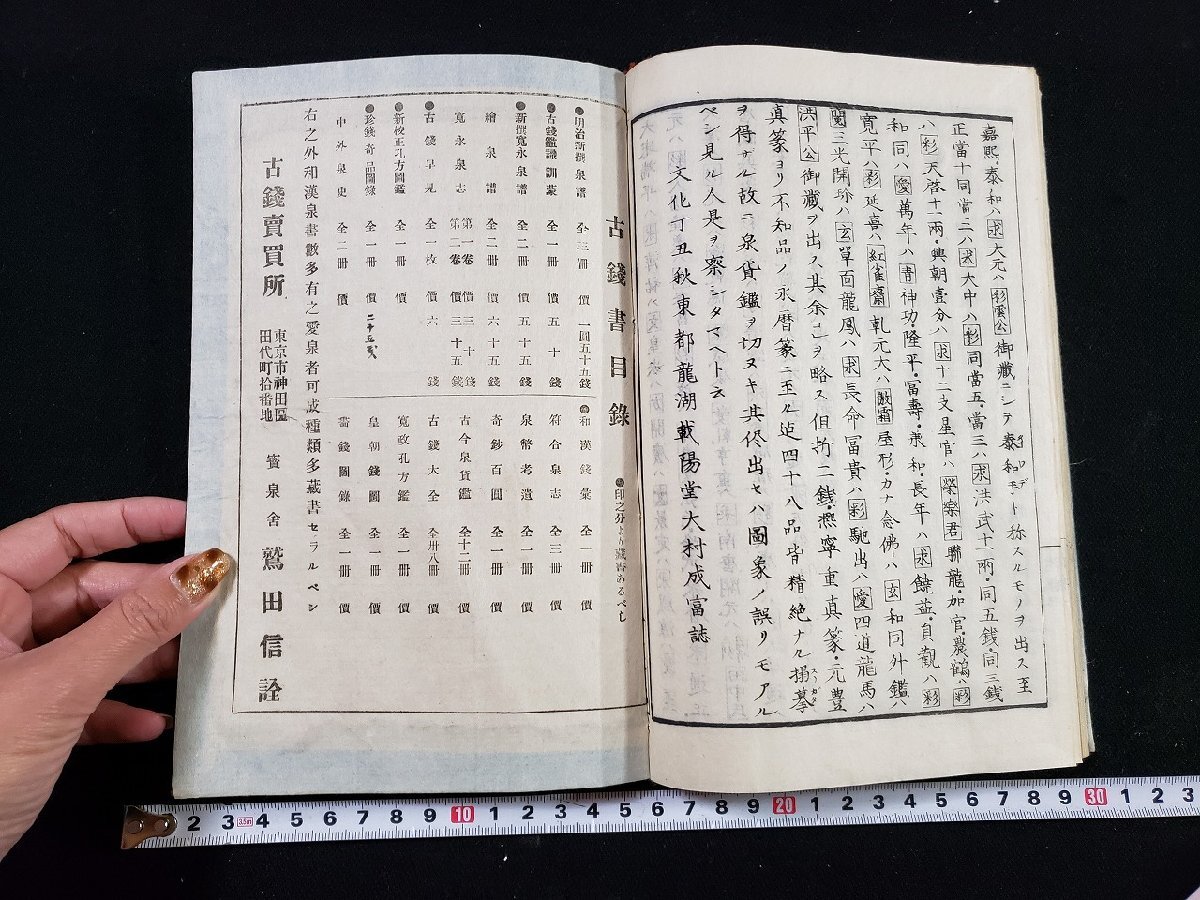 嘉熙・泰和ハ求大元ハ彩雲公御藏ニシテ泰和モドト称スルモノヲ出ス至
正當十同當二ハ求大中ハ彩同當五、當三ハ求洪武十一兩・同五銭・同三銭
ハ彩天啓十一兩・興朝壹分ハ求十二支星官ハ榮樂君聯龍・加官・農鶴ハ彩
和同ハ愛萬年ハ青神功・隆平・富壽・兼和・長年ハ求饒益・貞觀ハ彩
寛平ハ彩延喜ハ紅雀齋乹元大ハ激霜屋形・カナ念佛ハ玄和同外鑑ハ
閣三光開珎ハ玄單面龍鳳ハ求長命冨貴ハ彩馳出ハ愛四道龍馬ハ
洪平公御藏ヲ出ス其余ハ之ヲ略ス但折二銭・熈寧重真篆・元豊
真篆ヨリ不知品ノ永暦篆ニ至ル迠四十八品皆精絶ナル搨摹
ヲ得ナル故ニ泉貨鑑ヲ切ヌキ其侭出セハ圖象ノ誤リモアル
ベシ見ル人是ヲ察シタマヘト云
文化丁丑秋東都龍湖載陽堂大村成富誌
古錢書目錄
●印之分とか藏書あるべし
●明治新撰泉譜 全三冊 價一圓五十五錢
●古錢鑑識訓蒙 全一冊 價五十錢
●新撰寛永泉譜 全二冊 價五十五錢
繪泉譜 全二冊 價六十五錢
寛永泉志 第一卷 價三十錢 第二卷 價三十五錢
●古錢早見 全一枚 價六錢
●新校正孔方圖鑑 全一冊 價
●珍錢奇品圖錄 全一冊 價二十五戋
中外泉史 全二冊 價
●和漢錢彙 全一冊 價
符合泉志 全三冊 價
泉幣老遺 全一冊 價
奇鈔百圓 全一冊 價
古今泉貨鑑 全十二冊 價
古錢大全 全卅八冊 價
寬政孔方鑑 全一冊 價
皇朝錢圖 全一冊 價
舊錢圖錄 全一冊 價
右之外和漢泉書數多有之愛泉者可成種類多藏書セラルベシ
古錢賣買所 東京市神田區田代町拾番地 寳泉舍 鷲田信詮
2 3 3.5m 4 5 6 7 8 9 10 1 2 3 4 5 6 7 8 9 20 1 2 3 4 5 6 7 8 9 30 1 2 3